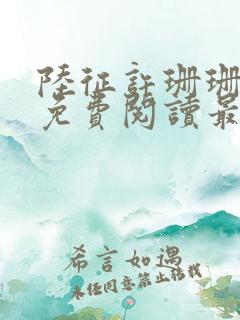 陸征許珊珊
免費閱讀最
希言如遇
未经同意禁止转载